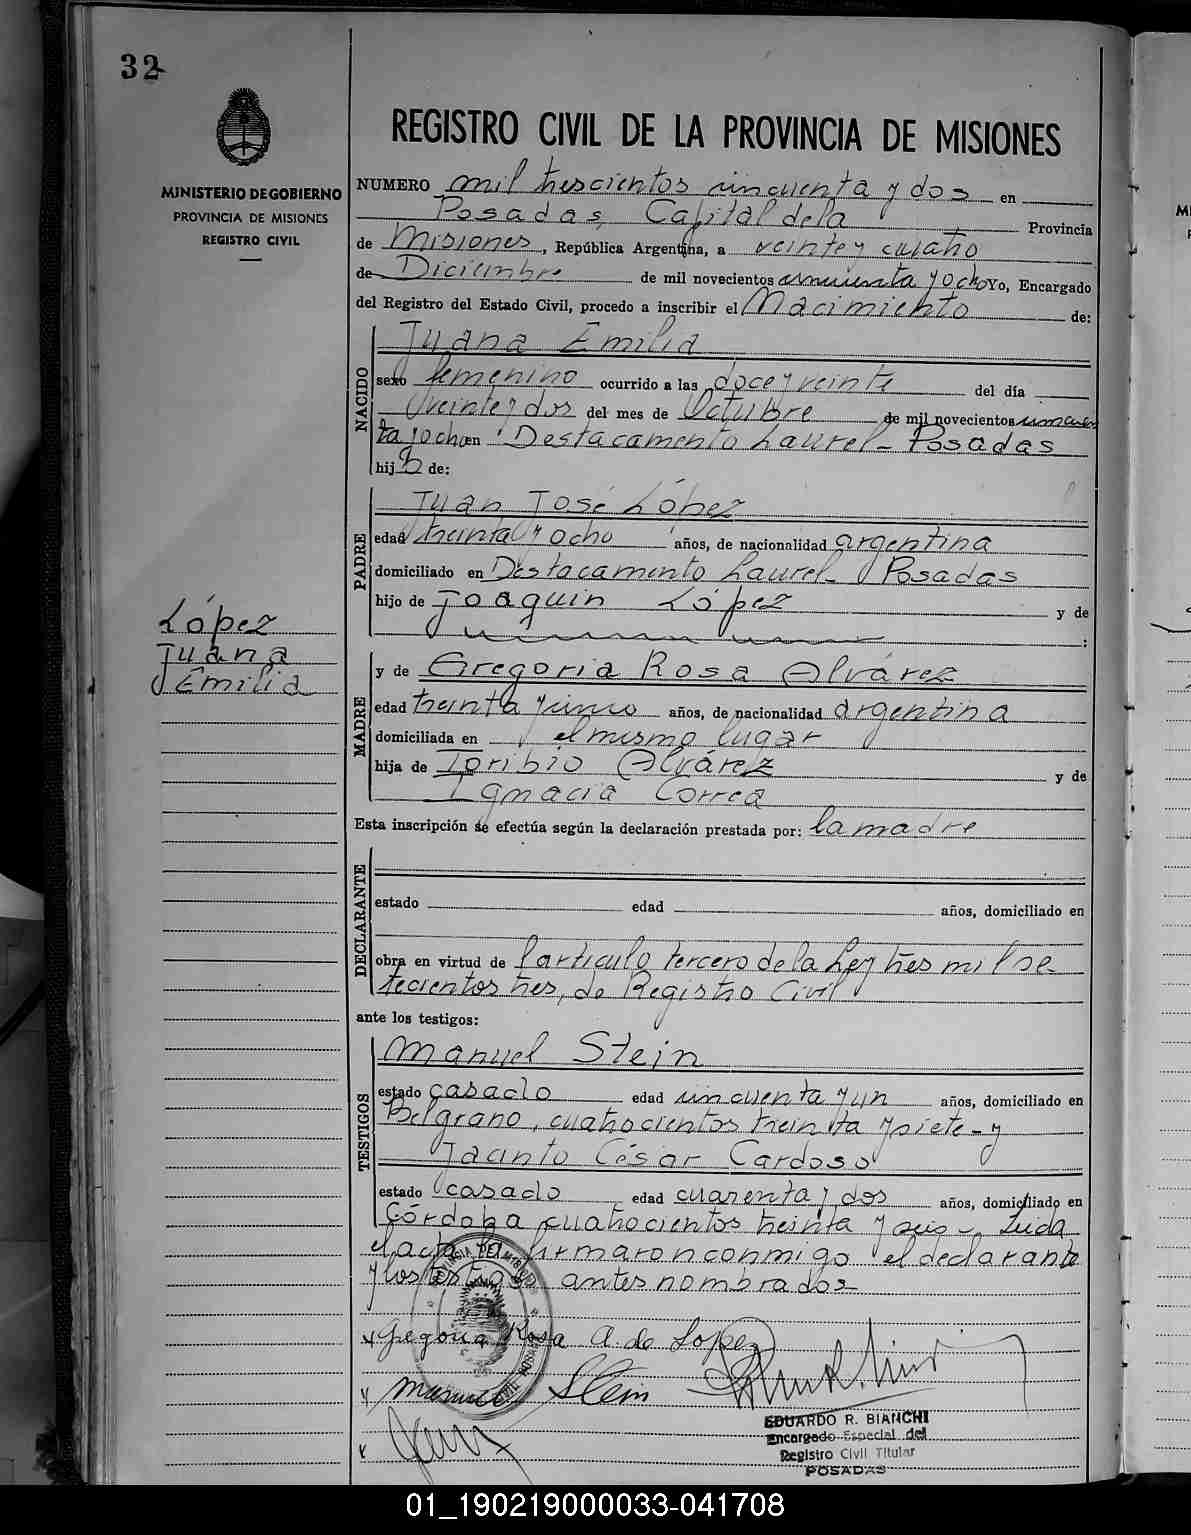 32
MINISTERIO DE GOBIERNO
PROVINCIA DE MISIONES
REGISTRO CIVIL
López
Juana
Emilia
REGISTRO CIVIL DE LA PROVINCIA DE MISIONES
NUMERO mil trescientos cincuenta y dos en
Posadas, Capital de la Provincia
de Misiones, República Argentina, a veinte y cuatro
de Diciembre de mil novecientos cincuenta y ocho Yo, Encargado
del Registro del Estado Civil, procedo a inscribir el Nacimiento de:
NACIDO
Juana Emilia
sexo femenino ocurrido a las doce y veinte del día
veinte y dos del mes de Octubre de mil novecientos cincuen
ta y ocho en Destacamento Laurel - Posadas
hija de:
PADRE
Juan José López
edad treinta y ocho años, de nacionalidad argentina
domiciliado en Destacamento Laurel - Posadas
hijo de Joaquin López y de
:
MADRE
y de Gregoria Rosa Alvárez
edad treinta y cinco años, de nacionalidad argentina
domiciliada en el mismo lugar
hija de Toribio Alvárez y de
Ignacia Correa
Esta inscripción se efectúa según la declaración prestada por: la madre
DECLARANTE
estado edad años, domiciliado en
obra en virtud de l articulo tercero de la Ley tres mil se-
tecientos tres, de Registro Civil
ante los testigos:
TESTIGOS
Manuel Stein
estado casado edad cincuenta y un años, domiciliado en
Belgrano, cuatrocientos treinta y siete - y
Jacinto César Cardoso
estado casado edad cuarenta y dos años, domiciliado en
Córdoba cuatrocientos treinta y seis - Leida
el acta la firmaron conmigo el declarante
y los testigos antes nombrados-
Gregoria Rosa A. de Lopez
Manuel Stein
EDUARDO R. BIANCHI
Encargado Especial del
Registro Civil Titular
POSADAS
01_190219000033-041708